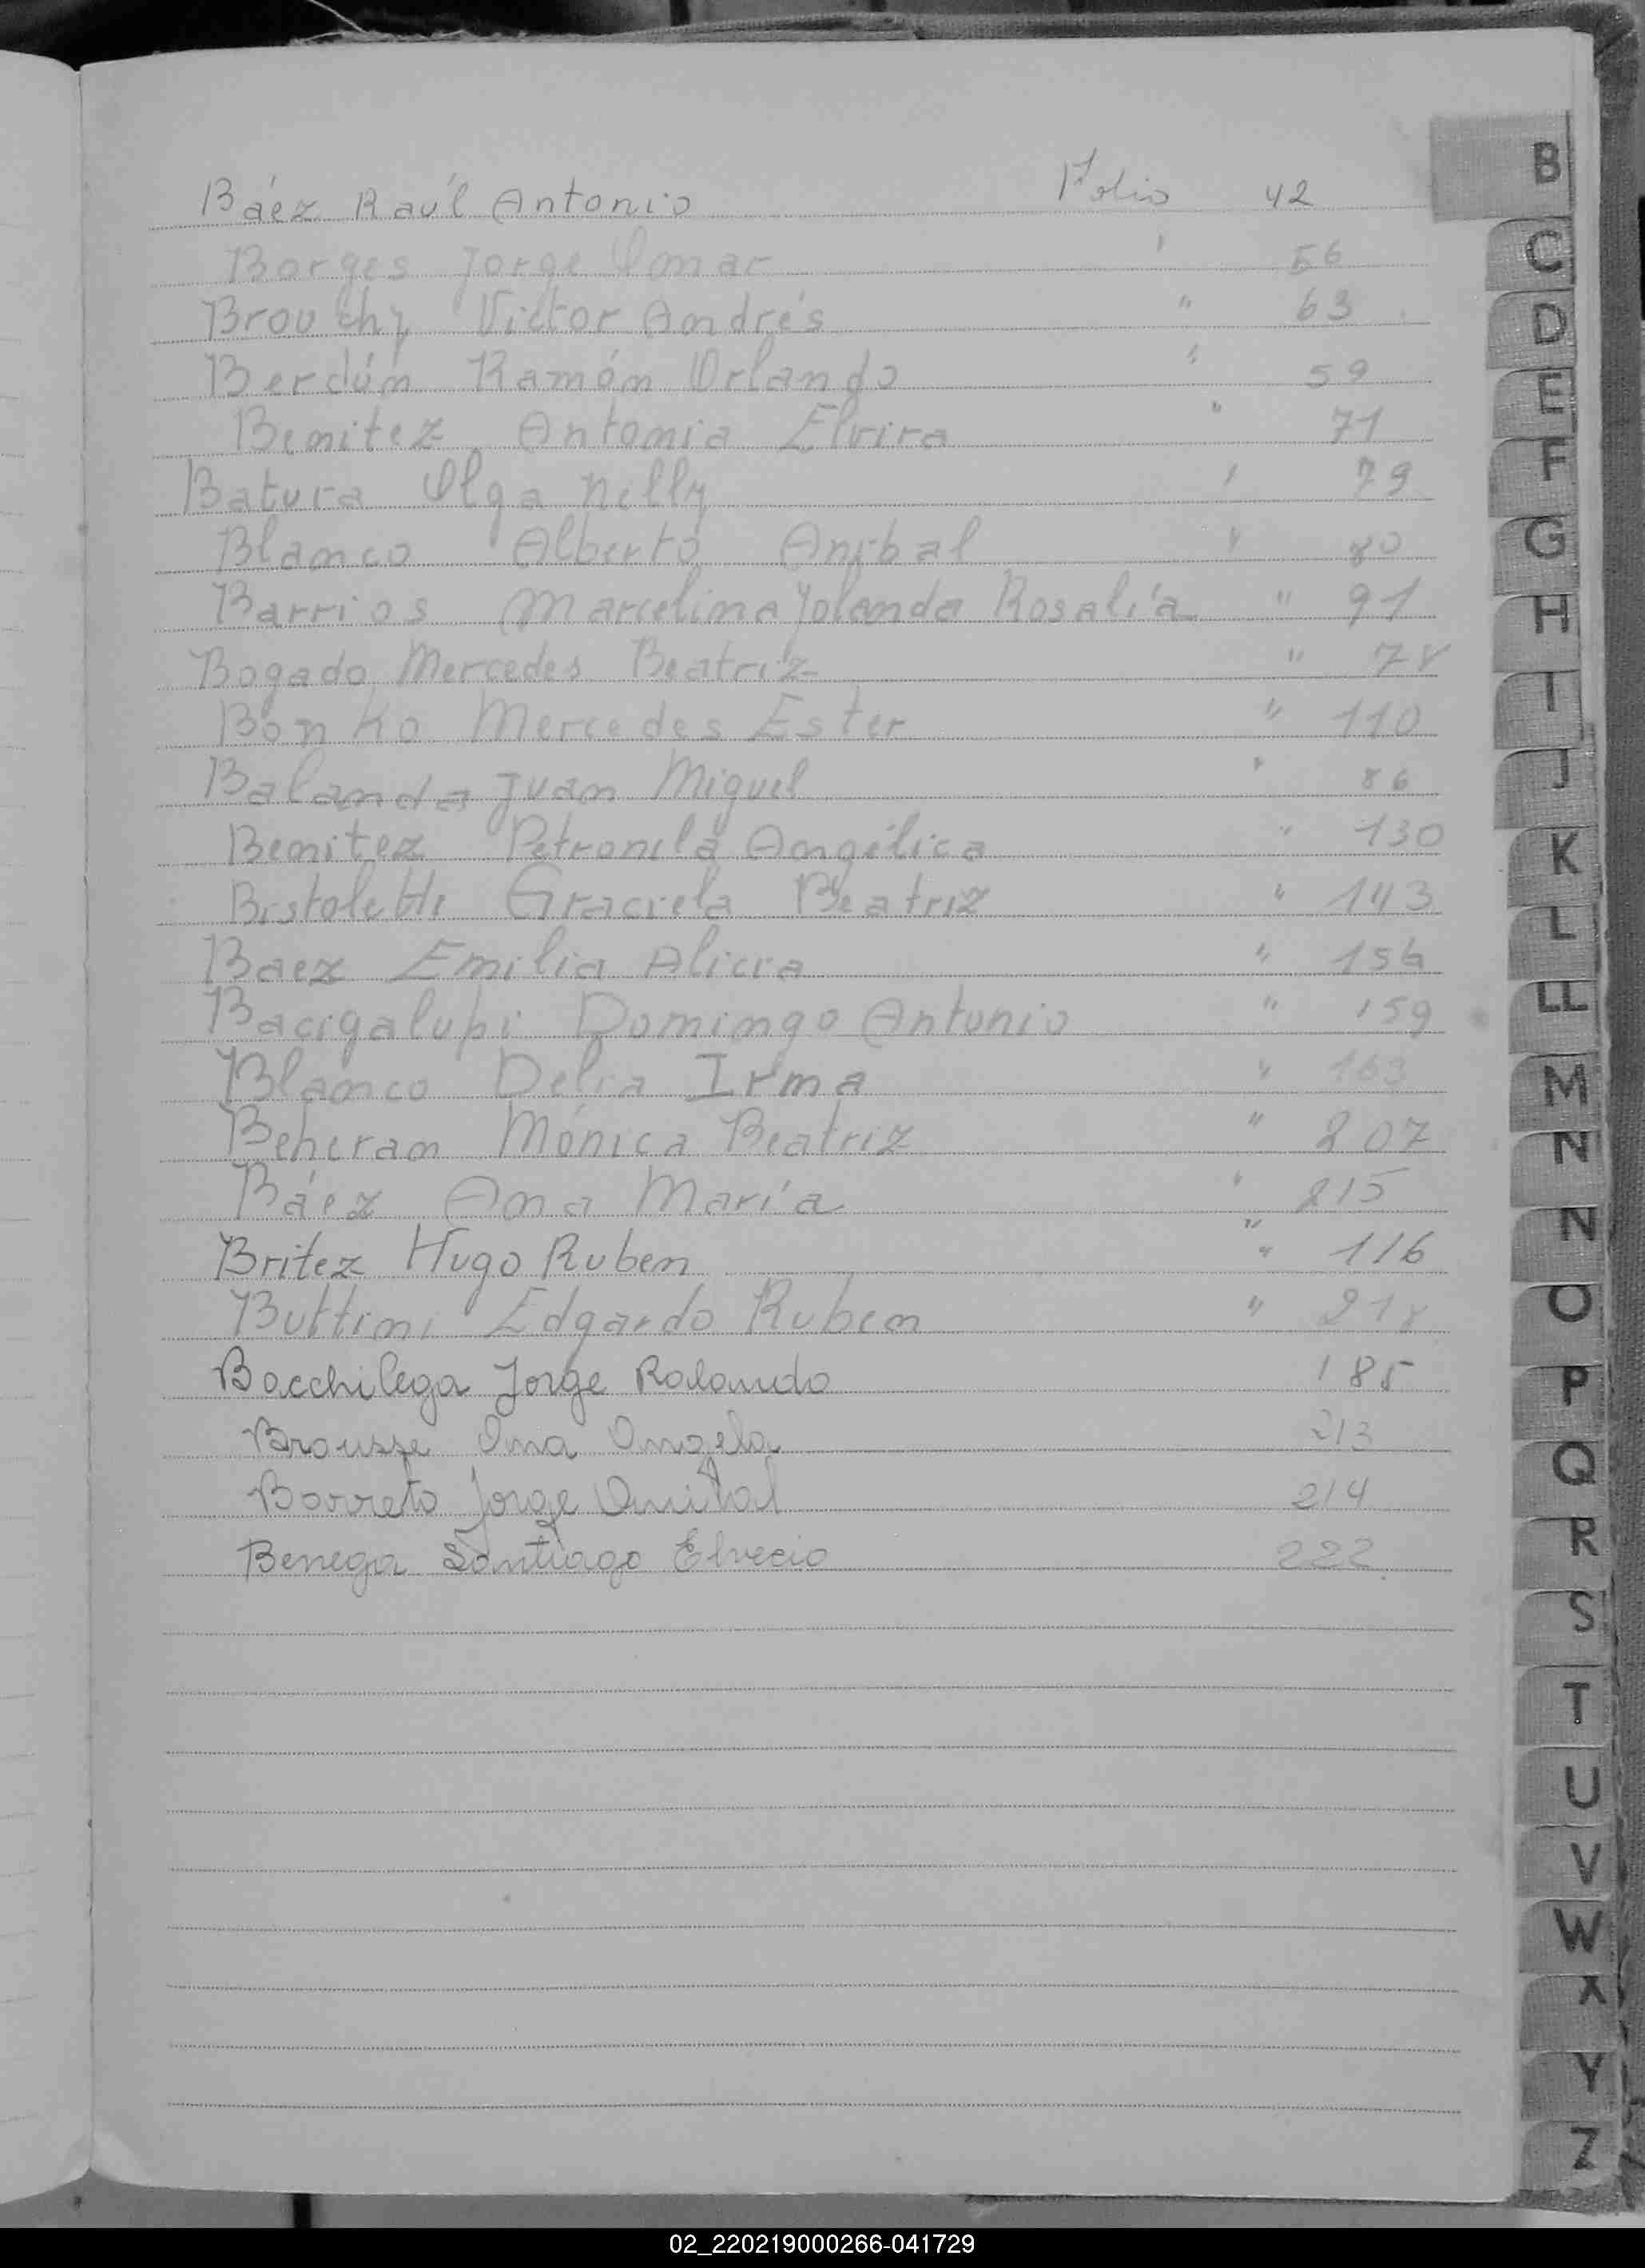 B
Báez Raúl Antonio Folio 42
Borges Jorge Omar " 56
Brouchy Victor Andrés " 63
Berdúm Ramón Orlando " 59
Benitez Antonia Elvira " 71
Batura Olga Nelly " 79
Blanco Alberto Anibal " 80
Barrios Marcelina Yolanda Rosalía " 91
Bogado Mercedes Beatriz " 78
Bonko Mercedes Ester " 110
Balanda Juan Miguel " 86
Benitez Petronila Angélica " 130
Bistoletti Graciela Beatriz " 143
Baez Emilia Alicia "
Bacigalupi Domingo Antonio " 159
Blanco Delia Irma " 163
Beheram Mónica Beatriz " 207
Báez Ana María " 215
Britez Hugo Ruben " 116
Buttini Edgardo Ruben " 218
Bacchilega Jorge Rolando 185
Brousse Ana Angela 213
Borreto Jorge Anibal 214
Benega Santiago Elvecio 222
C
D
E
F
G
H
I
J
K
L
LL
M
N
N
O
P
Q
R
S
T
U
V
W
X
Y
Z
02_220219000266-041729